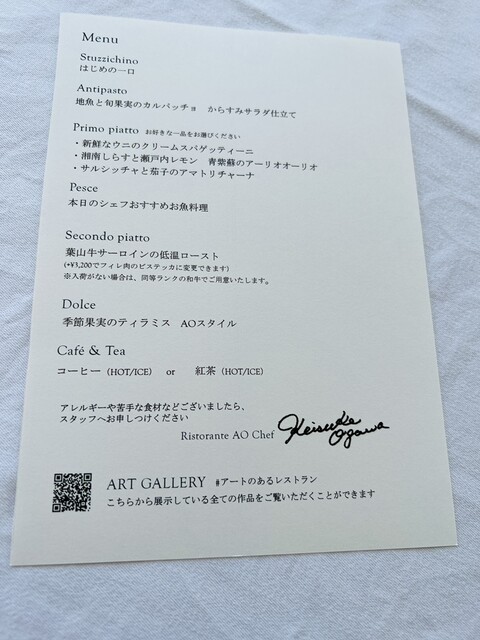 Menu
Stuzzichino
はじめの一口
Antipasto
地魚と旬果実のカルパッチョ　からすみサラダ仕立て
Primo piatto お好きな一品をお選びください
・新鮮なウニのクリームスパゲッティーニ
・湘南しらすと瀬戸内レモン　青紫蘇のアーリオオーリオ
・サルシッチャと茄子のアマトリチャーナ
Pesce
本日のシェフおすすめお魚料理
Secondo piatto
葉山牛サーロインの低温ロースト
(+¥3,200でフィレ肉のビステッカに変更できます)
※入荷がない場合は、同等ランクの和牛でご用意いたします。
Dolce
季節果実のティラミス　AOスタイル
Café & Tea
コーヒー (HOT/ICE)　or　紅茶 (HOT/ICE)
アレルギーや苦手な食材などございましたら、
スタッフへお申しつけください
Ristorante AO Chef Keisuke Ogawa
ART GALLERY #アートのあるレストラン
こちらから展示している全ての作品をご覧いただくことができます